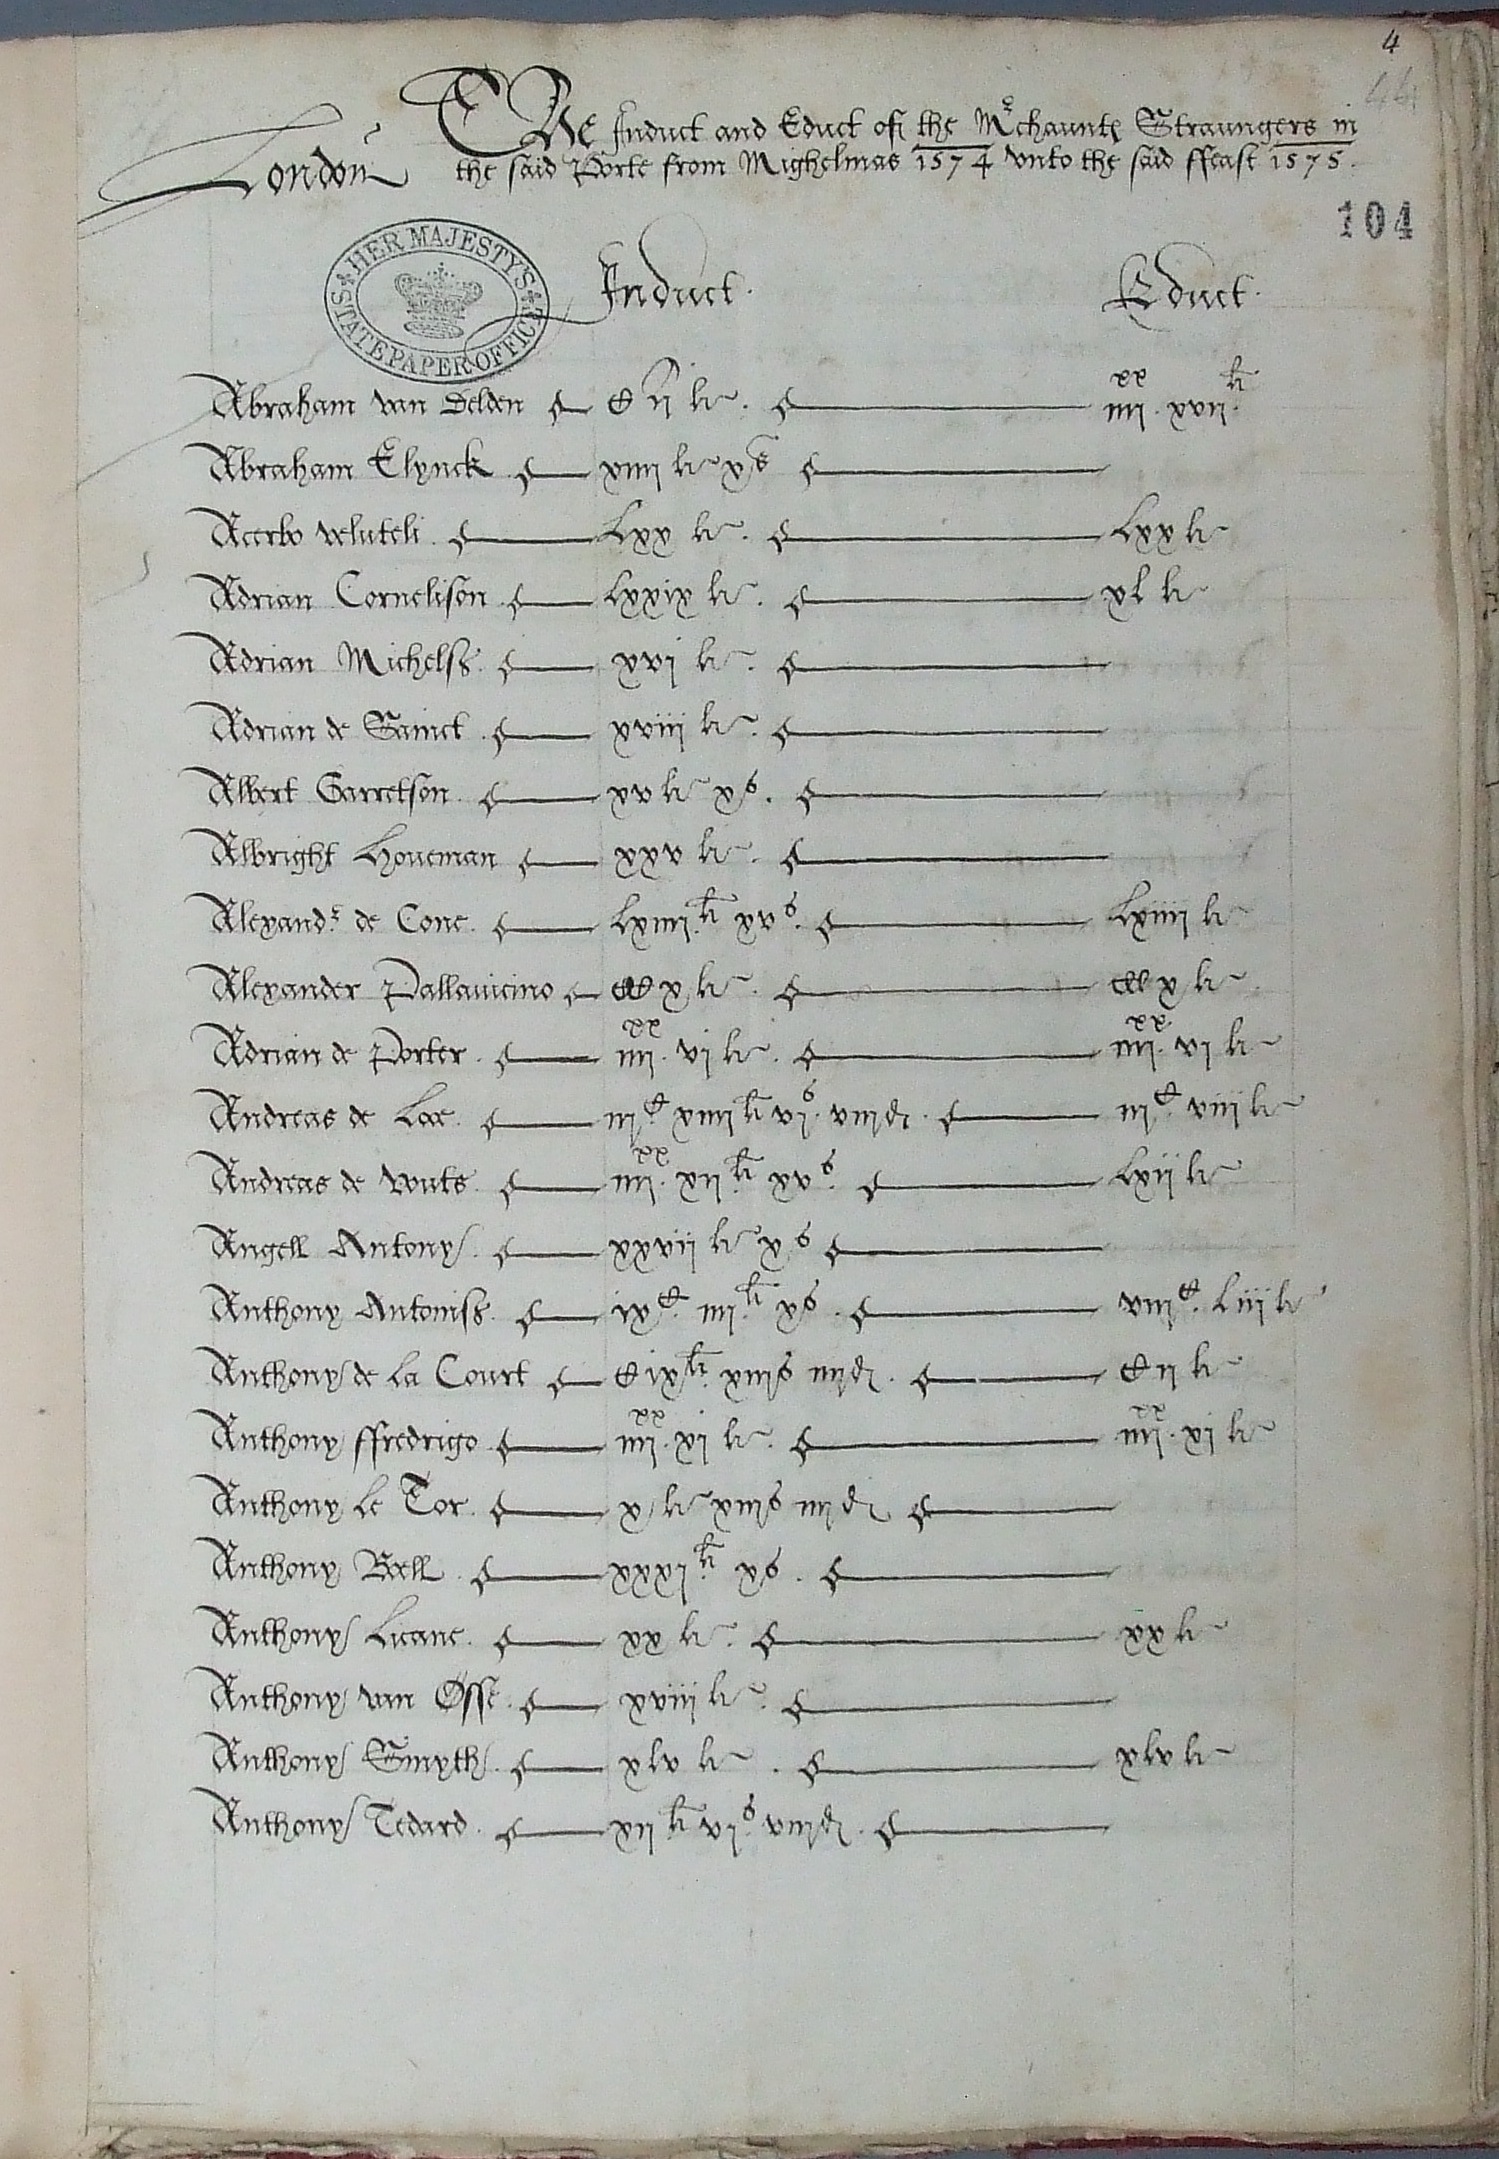 4
The Induct and Educt of the Mrchaunts Straungers in
London the said Porte from Mighelmas 1574 vnto the said ffeast 1575.
104
HER MAJESTY'S STATE PAPER OFFICE
Induct. Educt.
Abraham van Delden C ii li. iiii xx xvii li
Abraham Elynck xiiii li xs
Acerbo veluteli Lxx li. Lxx li
Adrian Cornelison Lxxix li. xl li
Adrian Michelss. xvi li.
Adrian de Sainct xviii li.
Albert Garretson xv li xs.
Albright Houeman xxv li.
Alexandr de Cone. Lxiiii li xvs. Lxiiii li
Alexander Pallauicino CC x li. CC x li
Adrian de Porter. iiii xx vi li. iiii xx vi li
Andreas de Loe. iii C xiiii li vis. viiid. iii C viii li
Andreas de wuts. iiii xx xii li xvs. Lxii li
Angell Antony. xxvii li xs
Anthony Antoniss. ix C. iiii li xs. viii C. Liii li
Anthony de la Court C ix li xiiis iiiid. C ii li
Anthony ffredrigo iiii xx xi li. iiii xx xi li
Anthony le Tor. x li xiiis iiiid
Anthony Bell. xxxi li xs.
Anthony Licane. xx li. xx li
Anthony van Osse. xviii li.
Anthony Smyth. xlv li. xlv li
Anthony Tedard. xii li vis. viiid.